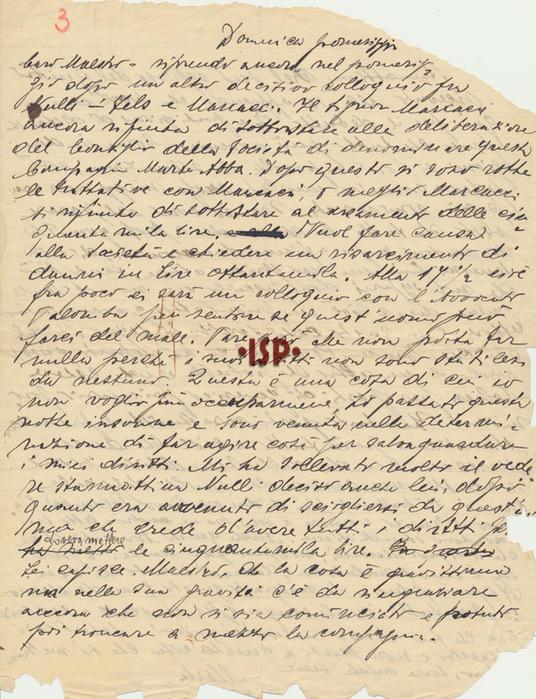 3
Domenica pomeriggio
Caro Maestro - riprendo ancora nel pomerig-
gio dopo un altro decisivo colloquio fra
Nulli - Zelo e Marcacci. Il signor Marcacci
ancora rifiuta di sottostare alla deliberazione
del Consiglio della Società di denominare questa
Compagnia Marta Abba. Dopo questo si sono rotte
le trattative con Marcacci, o meglio Marcacci
si rifiuta di sottostare al versamento delle cin-
quanta mila lire. Vuol fare causa
alla Società e chiedere un risarcimento di
danni in lire ottantamila. Alla 17 1/2 cioè
fra poco ci sarà un colloquio con l'Avvocato
Palomba per sentire se quest'uomo può
farci del male. Pare che non possa far
nulla perché i diritti non sono stati
da nessuno. Questa è una cosa di cui io
non voglio più occuparmene. Ho passato questa
notte insonne e sono venuta nella determi-
nazione di far agire così per salvaguardare
i miei diritti. Mi ha sollevato molto il vede-
re stamattina Nulli deciso anche lui, dopo
quanto era avvenuto di sciogliersi da quest'
uomo che crede d'avere tutti i diritti
le cinquantamila lire.
Lei capisce, Maestro, che la cosa è gravissima
ma nella sua gravità c'è da ringraziare
ancora che non si sia cominciato e
poi troncare a mezzo la compagnia.
ISP